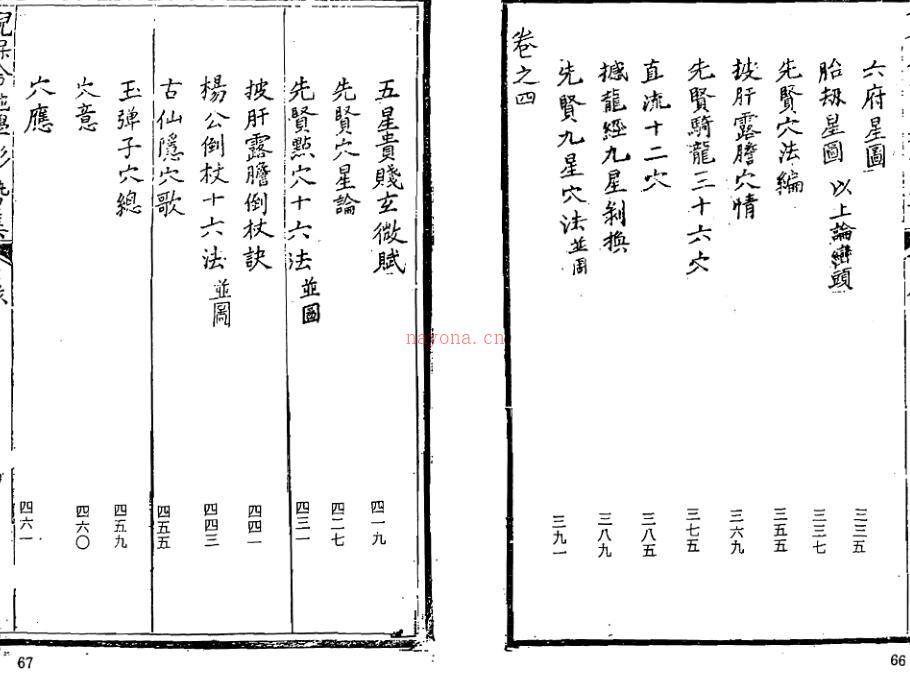 六府星圖 三三五
胎刼星圖 以上論巒頭 三三七
先賢穴法編 三五五
披肝露膽穴情 三六九
先賢騎龍三十六穴 三七五
直流十二穴 三八五
撼龍經九星剝換 三八九
先賢九星穴法並圖 三九一
卷之四
66
五星貴賤玄微賦 四一九
先賢穴星論 四二七
先賢㸃穴十六法並圖 四三一
披肝露膽倒杖訣 四四一
楊公倒杖十六法並圖 四四三
古仙隱穴歌 四五五
玉彈子穴總 四五九
穴意 四六〇
穴應 四六一
67
nayona.cn